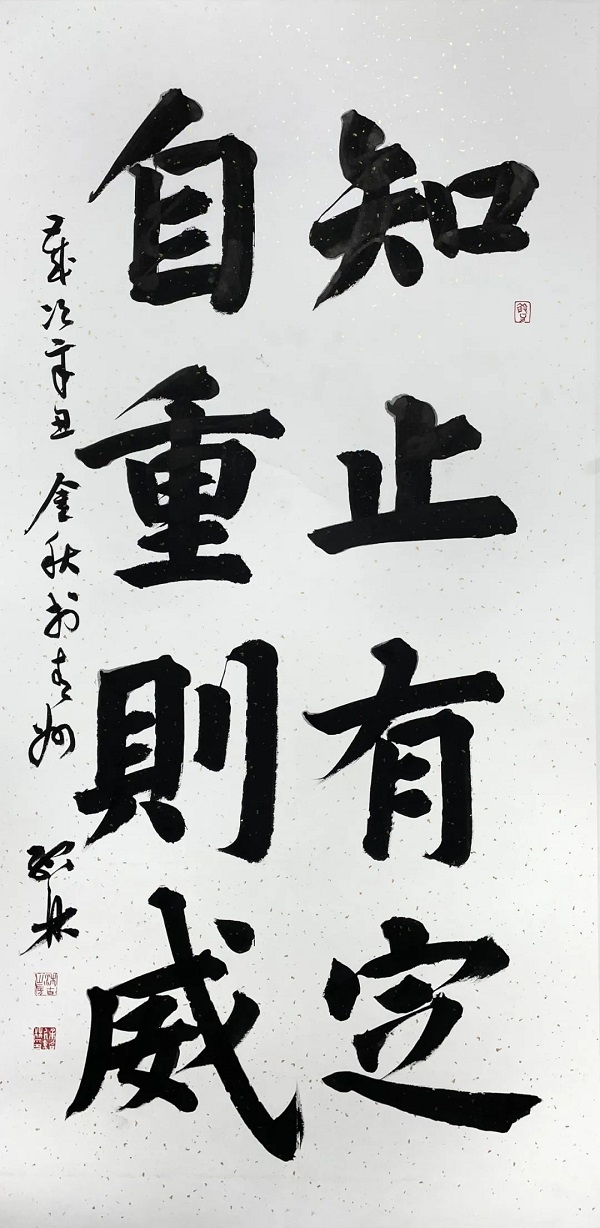 知止有定
自重則威
歲次辛丑金秋於青州